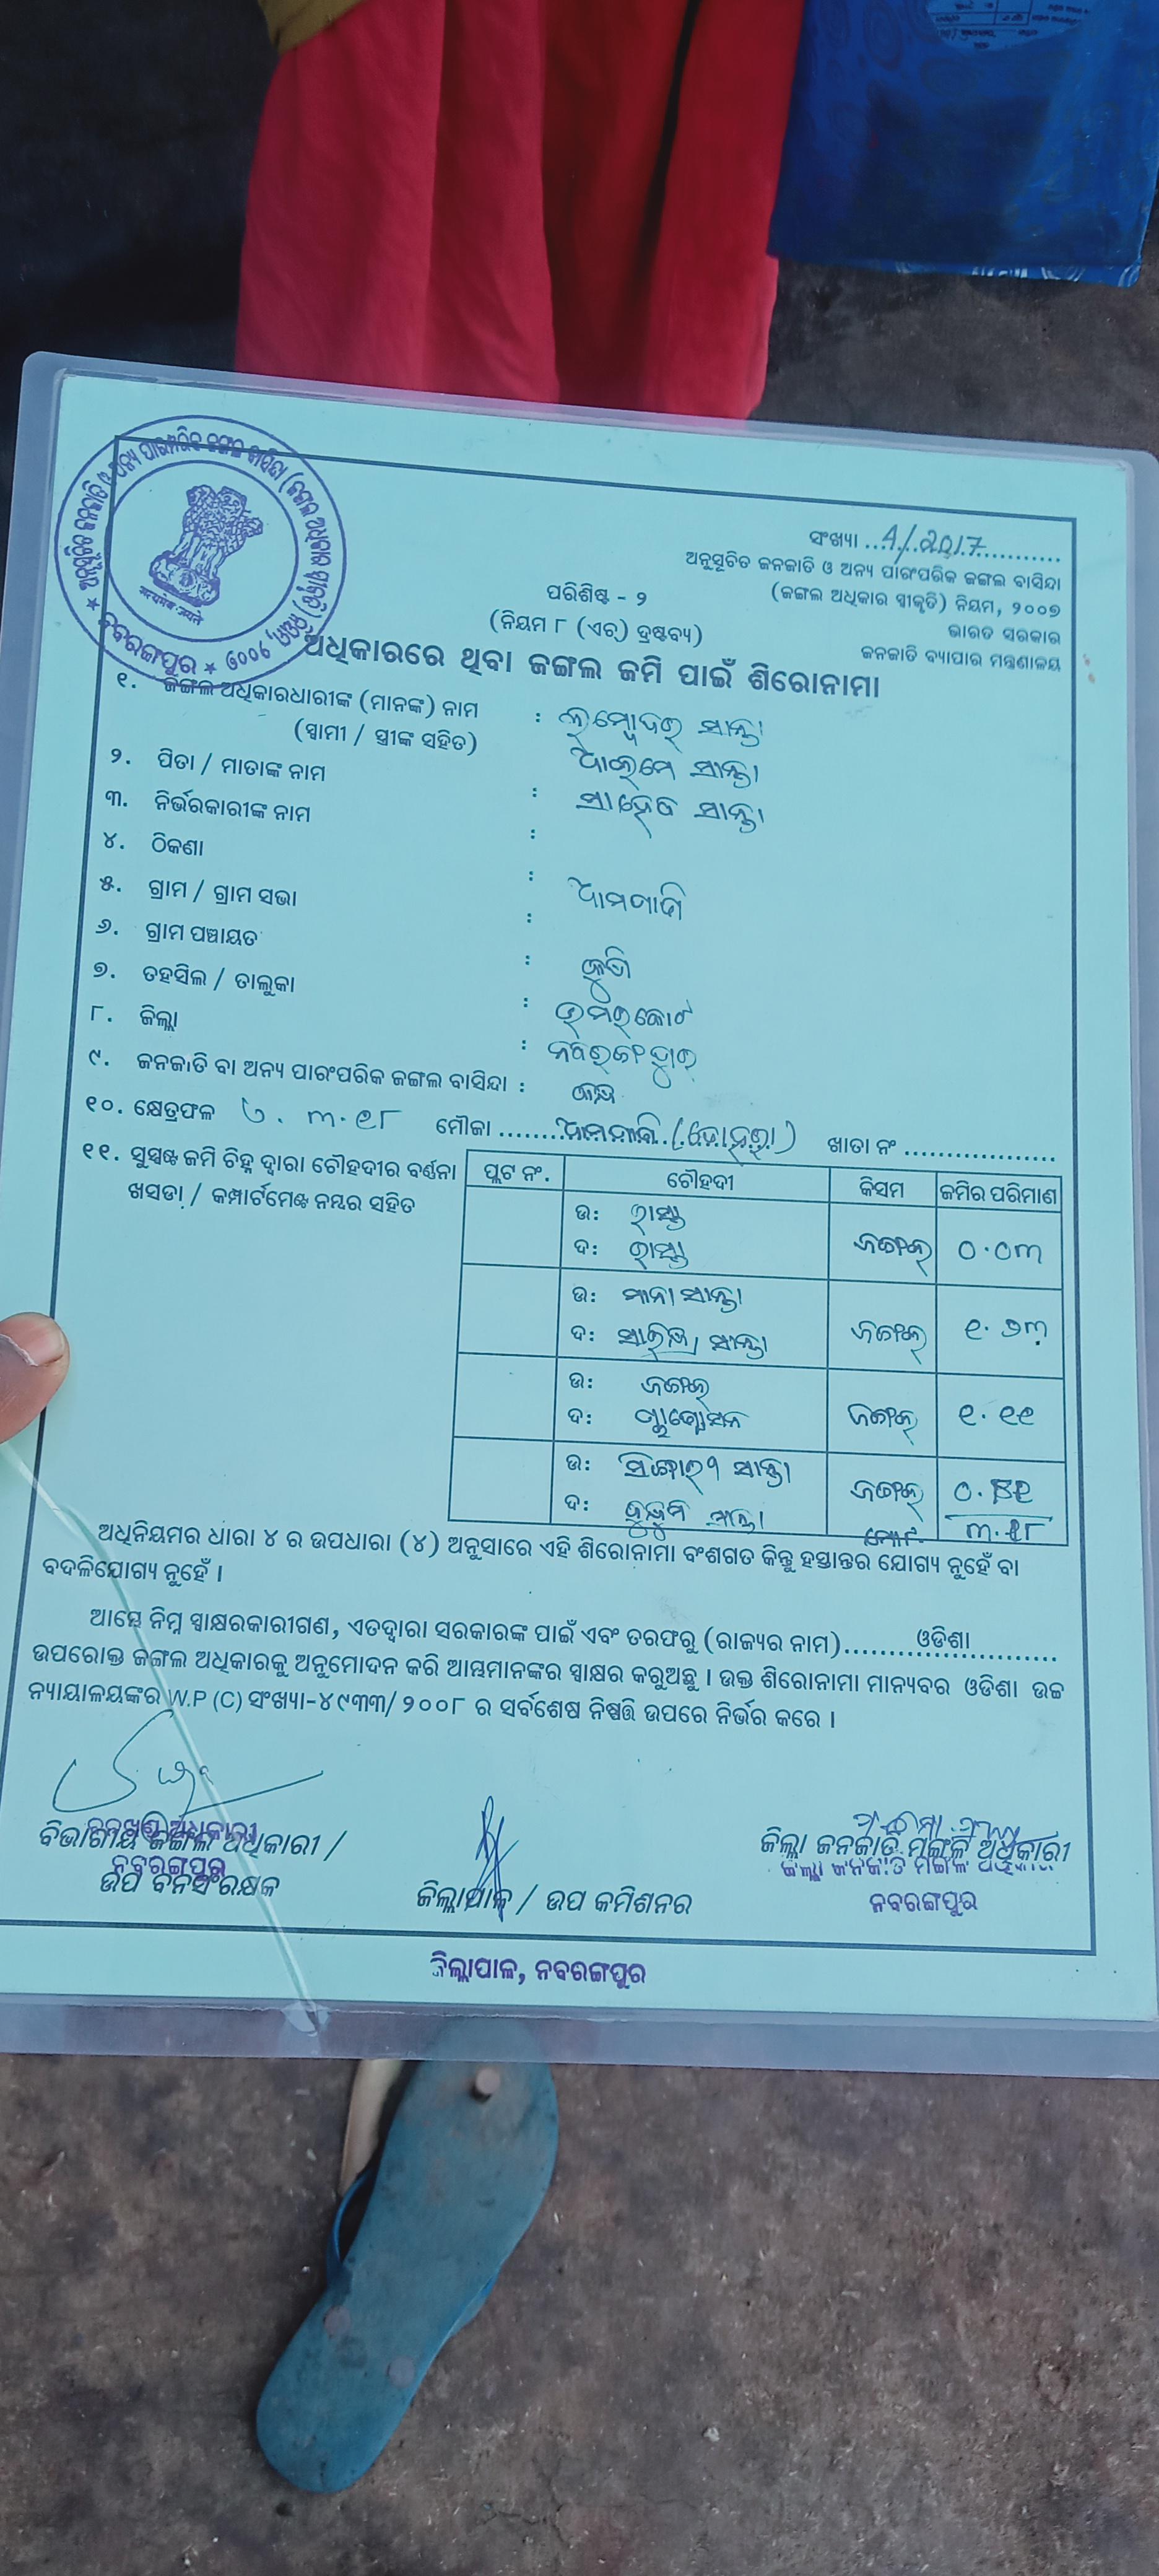 ସଂଖ୍ୟା ... 4/2017
ଅନୁସୂଚିତ ଜନଜାତି ଓ ଅନ୍ୟ ପାରଂପରିକ ଜଙ୍ଗଲ ବାସିନ୍ଦା
(ଜଙ୍ଗଲ ଅଧିକାର ସ୍ୱୀକୃତି) ନିୟମ, ୨୦୦୭
ଭାରତ ସରକାର
ଜନଜାତି ବ୍ୟାପାର ମନ୍ତ୍ରଣାଳୟ
ପରିଶିଷ୍ଟ - ୨
(ନିୟମ ୮ (ଏଚ୍) ଦ୍ରଷ୍ଟବ୍ୟ)
ଅଧିକାରରେ ଥିବା ଜଙ୍ଗଲ ଜମି ପାଇଁ ଶିରୋନାମା
୧. ଜଙ୍ଗଲ ଅଧିକାରଧାରୀଙ୍କ (ମାନଙ୍କ) ନାମ : ଲମ୍ବୋଦର ସାନ୍ତା
(ସ୍ୱାମୀ / ସ୍ତ୍ରୀଙ୍କ ସହିତ) ସାନ୍ତା
୨. ପିତା / ମାତାଙ୍କ ନାମ : ସାନ୍ତା
୩. ନିର୍ଭରକାରୀଙ୍କ ନାମ :
୪. ଠିକଣା :
୫. ଗ୍ରାମ / ଗ୍ରାମ ସଭା :
୬. ଗ୍ରାମ ପଞ୍ଚାୟତ :
୭. ତହସିଲ / ତାଲୁକା : ଉମରକୋଟ
୮. ଜିଲ୍ଲା : ନବରଙ୍ଗପୁର
୯. ଜନଜାତି ବା ଅନ୍ୟ ପାରଂପରିକ ଜଙ୍ଗଲ ବାସିନ୍ଦା :
୧୦. କ୍ଷେତ୍ରଫଳ ୩.୧୮ ମୌଜା ........ ଖାତା ନଂ ..................
୧୧. ସୁସ୍ପଷ୍ଟ ଜମି ଚିହ୍ନ ଦ୍ୱାରା ଚୌହଦୀର ବର୍ଣ୍ଣନା
ଖସଡା / କମ୍ପାର୍ଟମେଣ୍ଟ ନମ୍ବର ସହିତ
ପ୍ଲଟ ନଂ. ଚୌହଦୀ କିସମ ଜମିର ପରିମାଣ
ଉ: ରାସ୍ତା
ଦ: ରାସ୍ତା ଜଙ୍ଗଲ ୦.୦୩
ଉ: ସାନ୍ତା
ଦ: ସାନ୍ତା ଜଙ୍ଗଲ
ଉ: ଜଙ୍ଗଲ
ଦ: ଜଙ୍ଗଲ ୧.୧୧
ଉ: ସାନ୍ତା
ଦ: ସାନ୍ତା ଜଙ୍ଗଲ
ମୋଟ ୩.୧୮
ଅଧିନିୟମର ଧାରା ୪ ର ଉପଧାରା (୪) ଅନୁସାରେ ଏହି ଶିରୋନାମା ବଂଶଗତ କିନ୍ତୁ ହସ୍ତାନ୍ତର ଯୋଗ୍ୟ ନୁହେଁ ବା
ବଦଳିଯୋଗ୍ୟ ନୁହେଁ ।
ଆମ୍ଭେ ନିମ୍ନ ସ୍ୱାକ୍ଷରକାରୀଗଣ, ଏତଦ୍ୱାରା ସରକାରଙ୍କ ପାଇଁ ଏବଂ ତରଫରୁ (ରାଜ୍ୟର ନାମ)........ଓଡିଶା........
ଉପରୋକ୍ତ ଜଙ୍ଗଲ ଅଧିକାରକୁ ଅନୁମୋଦନ କରି ଆମ୍ଭମାନଙ୍କର ସ୍ୱାକ୍ଷର କରୁଅଛୁ । ଉକ୍ତ ଶିରୋନାମା ମାନ୍ୟବର ଓଡିଶା ଉଚ୍ଚ
ନ୍ୟାୟାଳୟଙ୍କର W.P (C) ସଂଖ୍ୟା-୪୯୩୩/ ୨୦୦୮ ର ସର୍ବଶେଷ ନିଷ୍ପତ୍ତି ଉପରେ ନିର୍ଭର କରେ ।
ବନଖଣ୍ଡ ଅଧିକାରୀ
ବିଭାଗୀୟ ଜଙ୍ଗଲ ଅଧିକାରୀ /
ନବରଙ୍ଗପୁର
ଉପ ବନସଂରକ୍ଷକ
ଜିଲ୍ଲାପାଳ / ଉପ କମିଶନର
ଜିଲ୍ଲା ଜନଜାତି ମଙ୍ଗଳ ଅଧିକାରୀ
ଜିଲ୍ଲା ଜନଜାତି ମଙ୍ଗଳ ଅଧିକାରୀ
ନବରଙ୍ଗପୁର
ଜିଲ୍ଲାପାଳ, ନବରଙ୍ଗପୁର